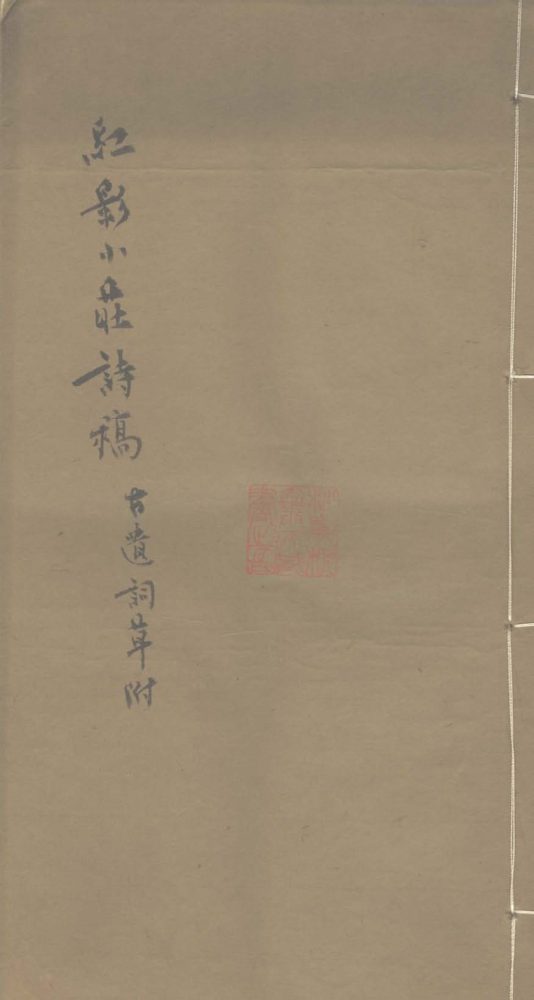 紅影小莊詩稿
古遺詞草附